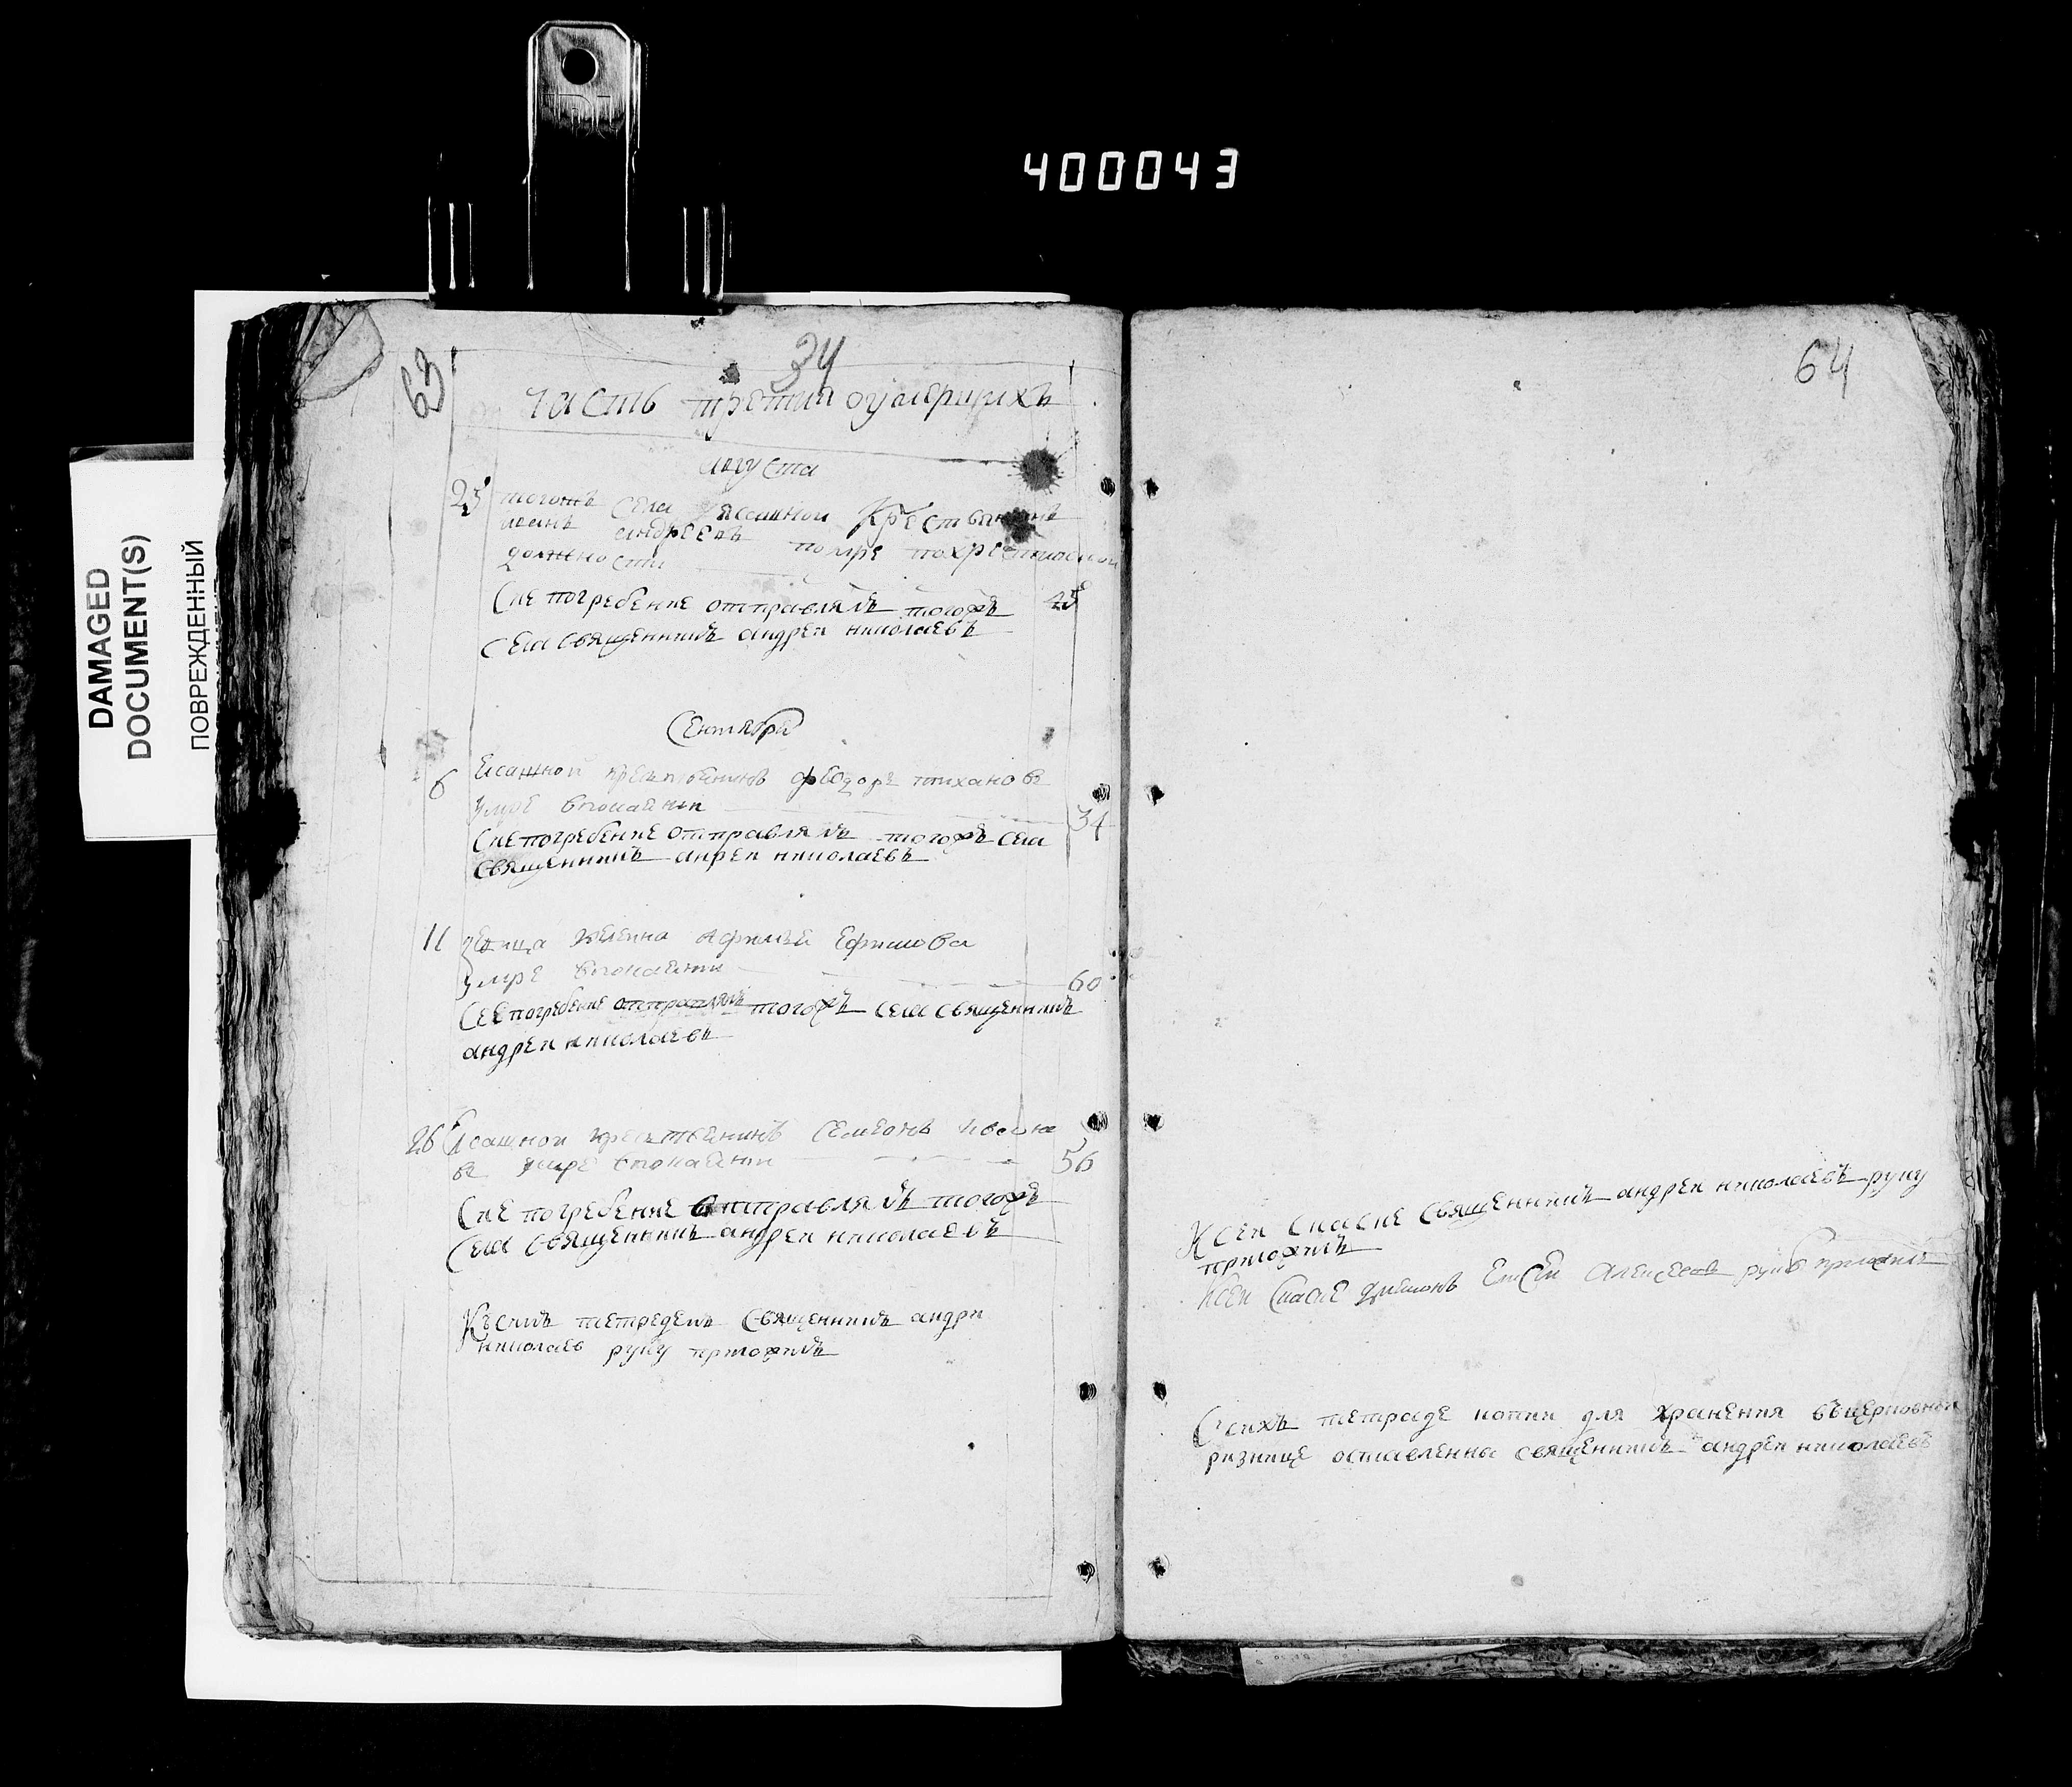 400043
DAMAGED
DOCUMENT(S)
ПОВРЕЖДЕННЫЙ
63
34
часть третия оумершихъ
августа
25 тогожъ села крестьянинъ
иванъ андреевъ помре
должности
Сие погребение отправлялъ тогожъ 45
села священникъ андреи николаевъ
Сентября
6 Ясашной крестьянинъ феодоръ тихановъ
умре впокаянии 34
Сие погребение отправлялъ тогожъ села
священникъ анреи николаевъ
11 Ефимова
умре впокаянии 60
Сее погребение отправлялъ тогожъ села священникъ
андреи николаевъ
26 Ясашной крестьянинъ Семионъ Ивано
въ умре впокаянии 56
Сие погребение отправлялъ тогожъ
села священникъ андреи николаевъ
Къ симъ тетредемъ священникъ андри
николаев руку приложилъ
64
К сеи священникъ андреи николаевъ руку
приложилъ
К сеи Алексеевъ руку приложилъ
С сихъ тетраде копии для хранения въ церковнеи
ризнице оставленны священникъ андреи николаевъ